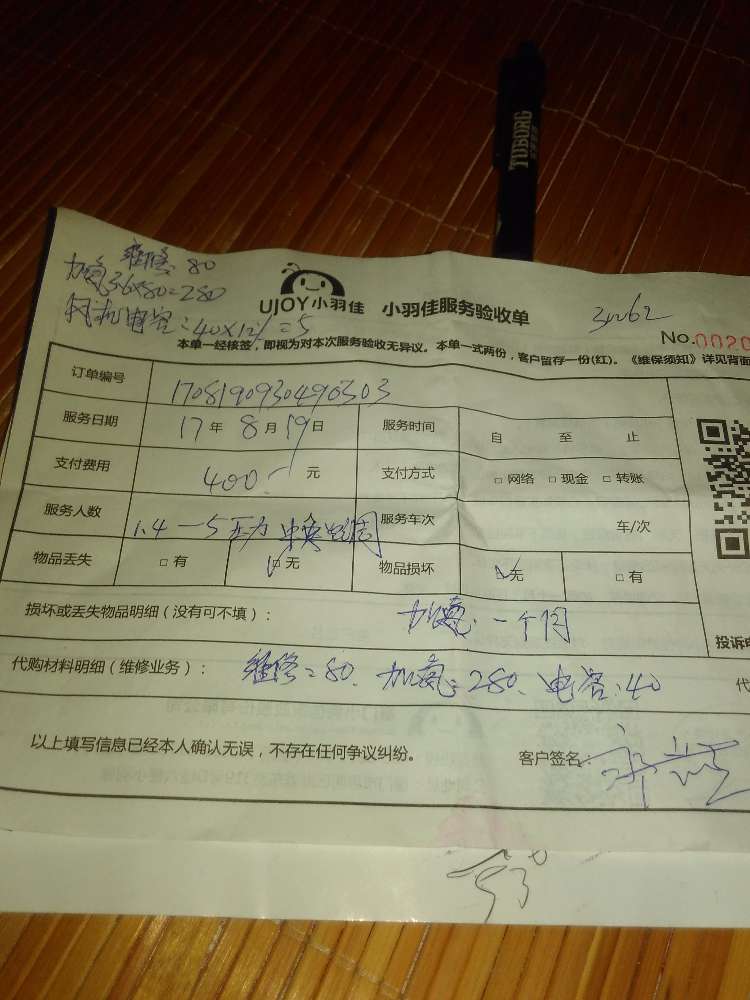 TUBORG
维修: 80
加氟3.6×80=280
风机电容:40×1个=5
UJOY小羽佳 小羽佳服务验收单
No.0020
本单一经核签,即视为对本次服务验收无异议。本单一式两份,客户留存一份(红)。《维保须知》详见背面
订单编号 170819093049
服务日期 17年 8月19日 服务时间 自 至 止
支付费用 400. 元 支付方式 □ 网络 □ 现金 □ 转账
服务人数 服务车次 车/次
物品丢失 □ 有 □ 无 物品损坏 □ 无 □ 有
损坏或丢失物品明细(没有可不填): 加氟:一个月
投诉电
代购材料明细(维修业务): 维修=80、加氟=280、电容:40
代
以上填写信息已经本人确认无误,不存在任何争议纠纷。 客户签名: